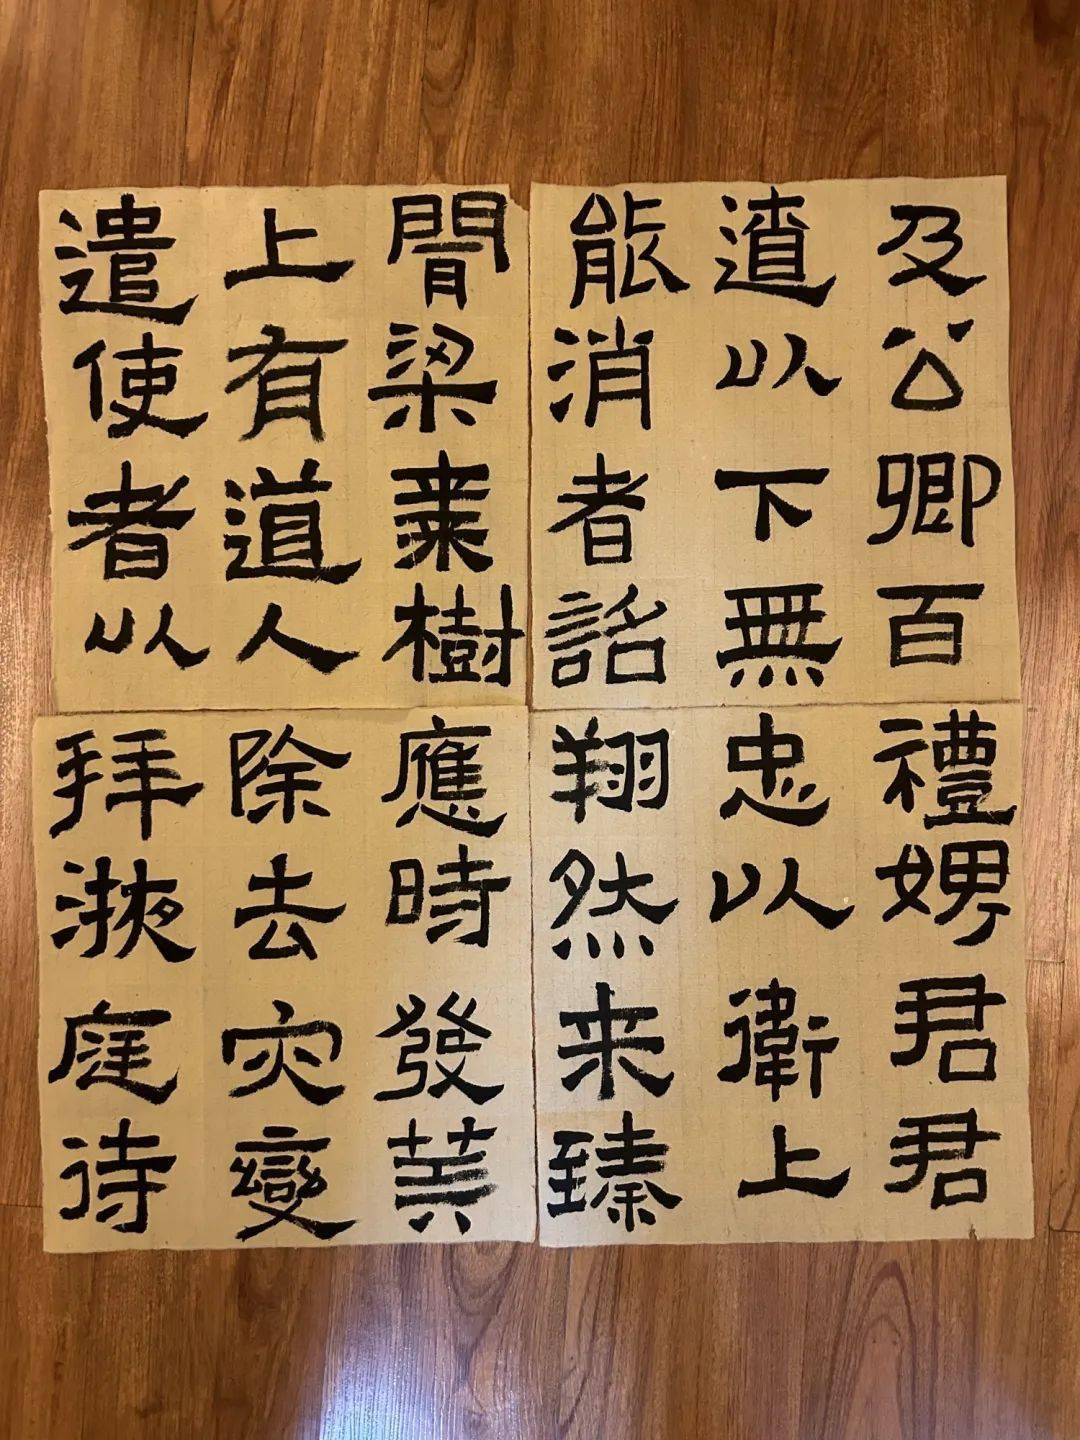 及公卿百
遼以下無
能消者詔
聞梁棗樹
上有道人
遣使者以
禮娉君君
忠以衛上
翔然来臻
應時發筭
除去灾變
拜掖庭待